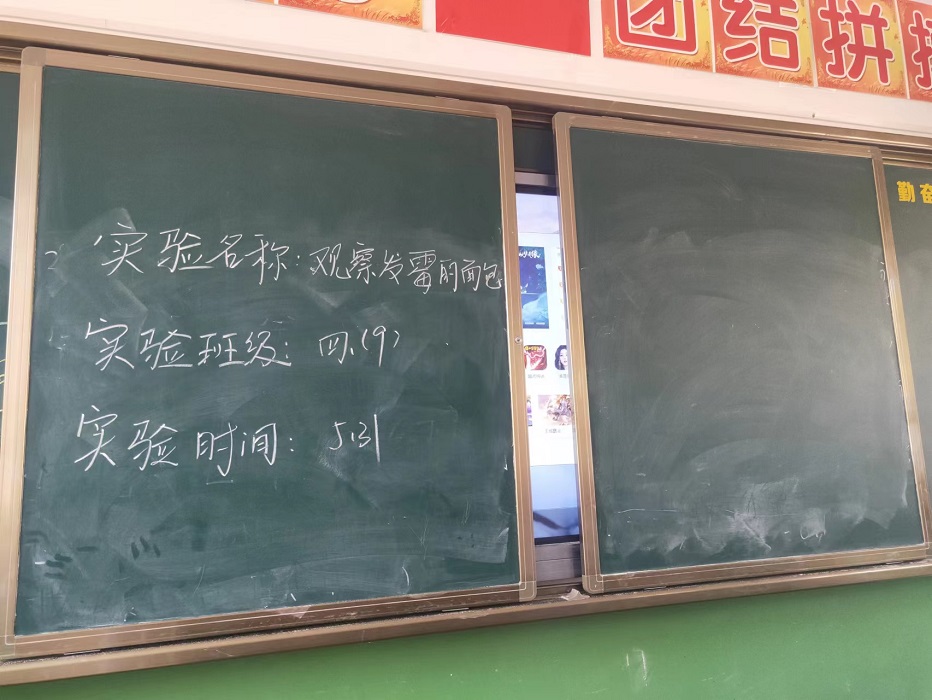 团结拼
勤奋
实验名称:观察发霉的面包
实验班级:四、(9)
实验时间:5.31